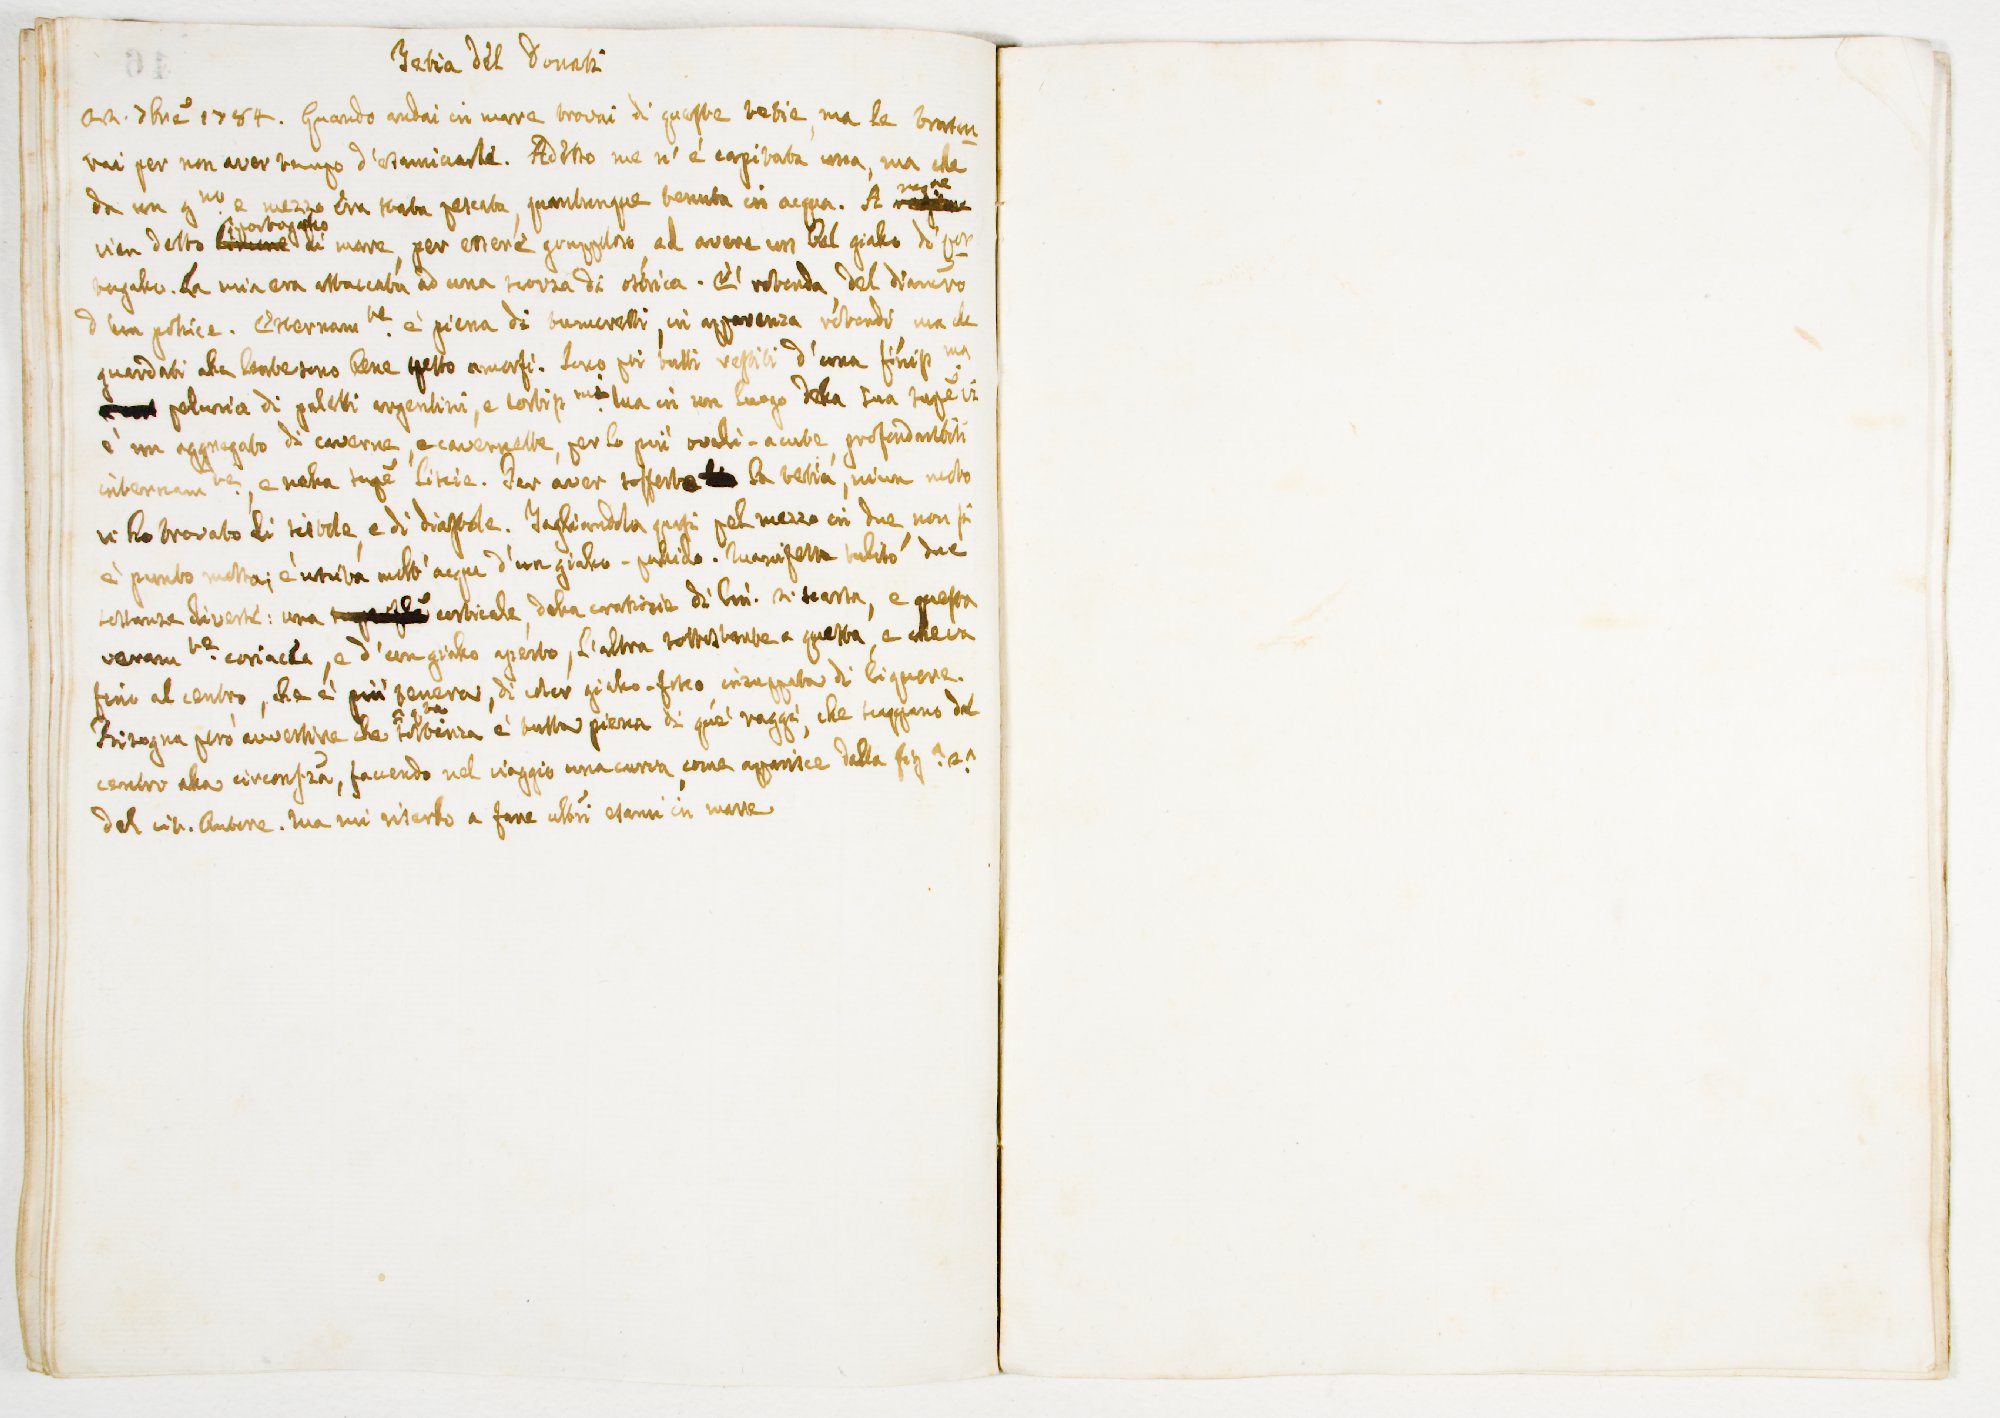 Tetia del Donati
22. 7bre 1784. Quando andai in mare trovai di queste tetie, ma le trascu-
rai per non aver tempo d'esaminarle. Adesso me n'è capitata una, ma che
da un g.no e mezzo era stata pescata, quantunque tenuta in acqua. A
vien detto portogallo di mare, per essere globoso, ed avere un bel giallo di por-
togallo. La mia era attaccata ad una scorza di ostrica. E' rotonda, del diametro
d'un pollice. Esternam.te è piena di tumoretti, in apparenza rotondi, ma che
guardati alla lente sono bene spesso amorfi. Sono poi tutti vestiti d'una finiss.ma
peluria di peletti argentini, e cortiss.mi. Ma in un luogo della sua supe
è un aggregato di caverne, e cavernette, per lo più ovali-acute, profondantisi
internam.te, e nella supe liscie. Per aver sofferto la tetia, niun moto
vi ho trovato di sistole, e di diastole. Tagliandola quasi pel mezzo in due, non si
è punto mossa; è uscita molt'acqua d'un giallo-pallido. Manifesta subito due
sostanze diverse: una corticale, della crassizie di lin. 2 scarsa, e questa
veram.te coriacea, e d'un giallo aperto, l'altra sottostante a questa, e che va
fino al centro, che è più tenera, di color giallo-fosco inzuppata di liquore.
Bisogna però avvertire che questa sostanza è tutta piena di que' raggi, che scappano dal
centro alla circonfza, facendo nel viaggio una curva, come apparisce dalla fig.a 2.a
del cit. Autore. Ma mi riserbo a fare altri esami in mare